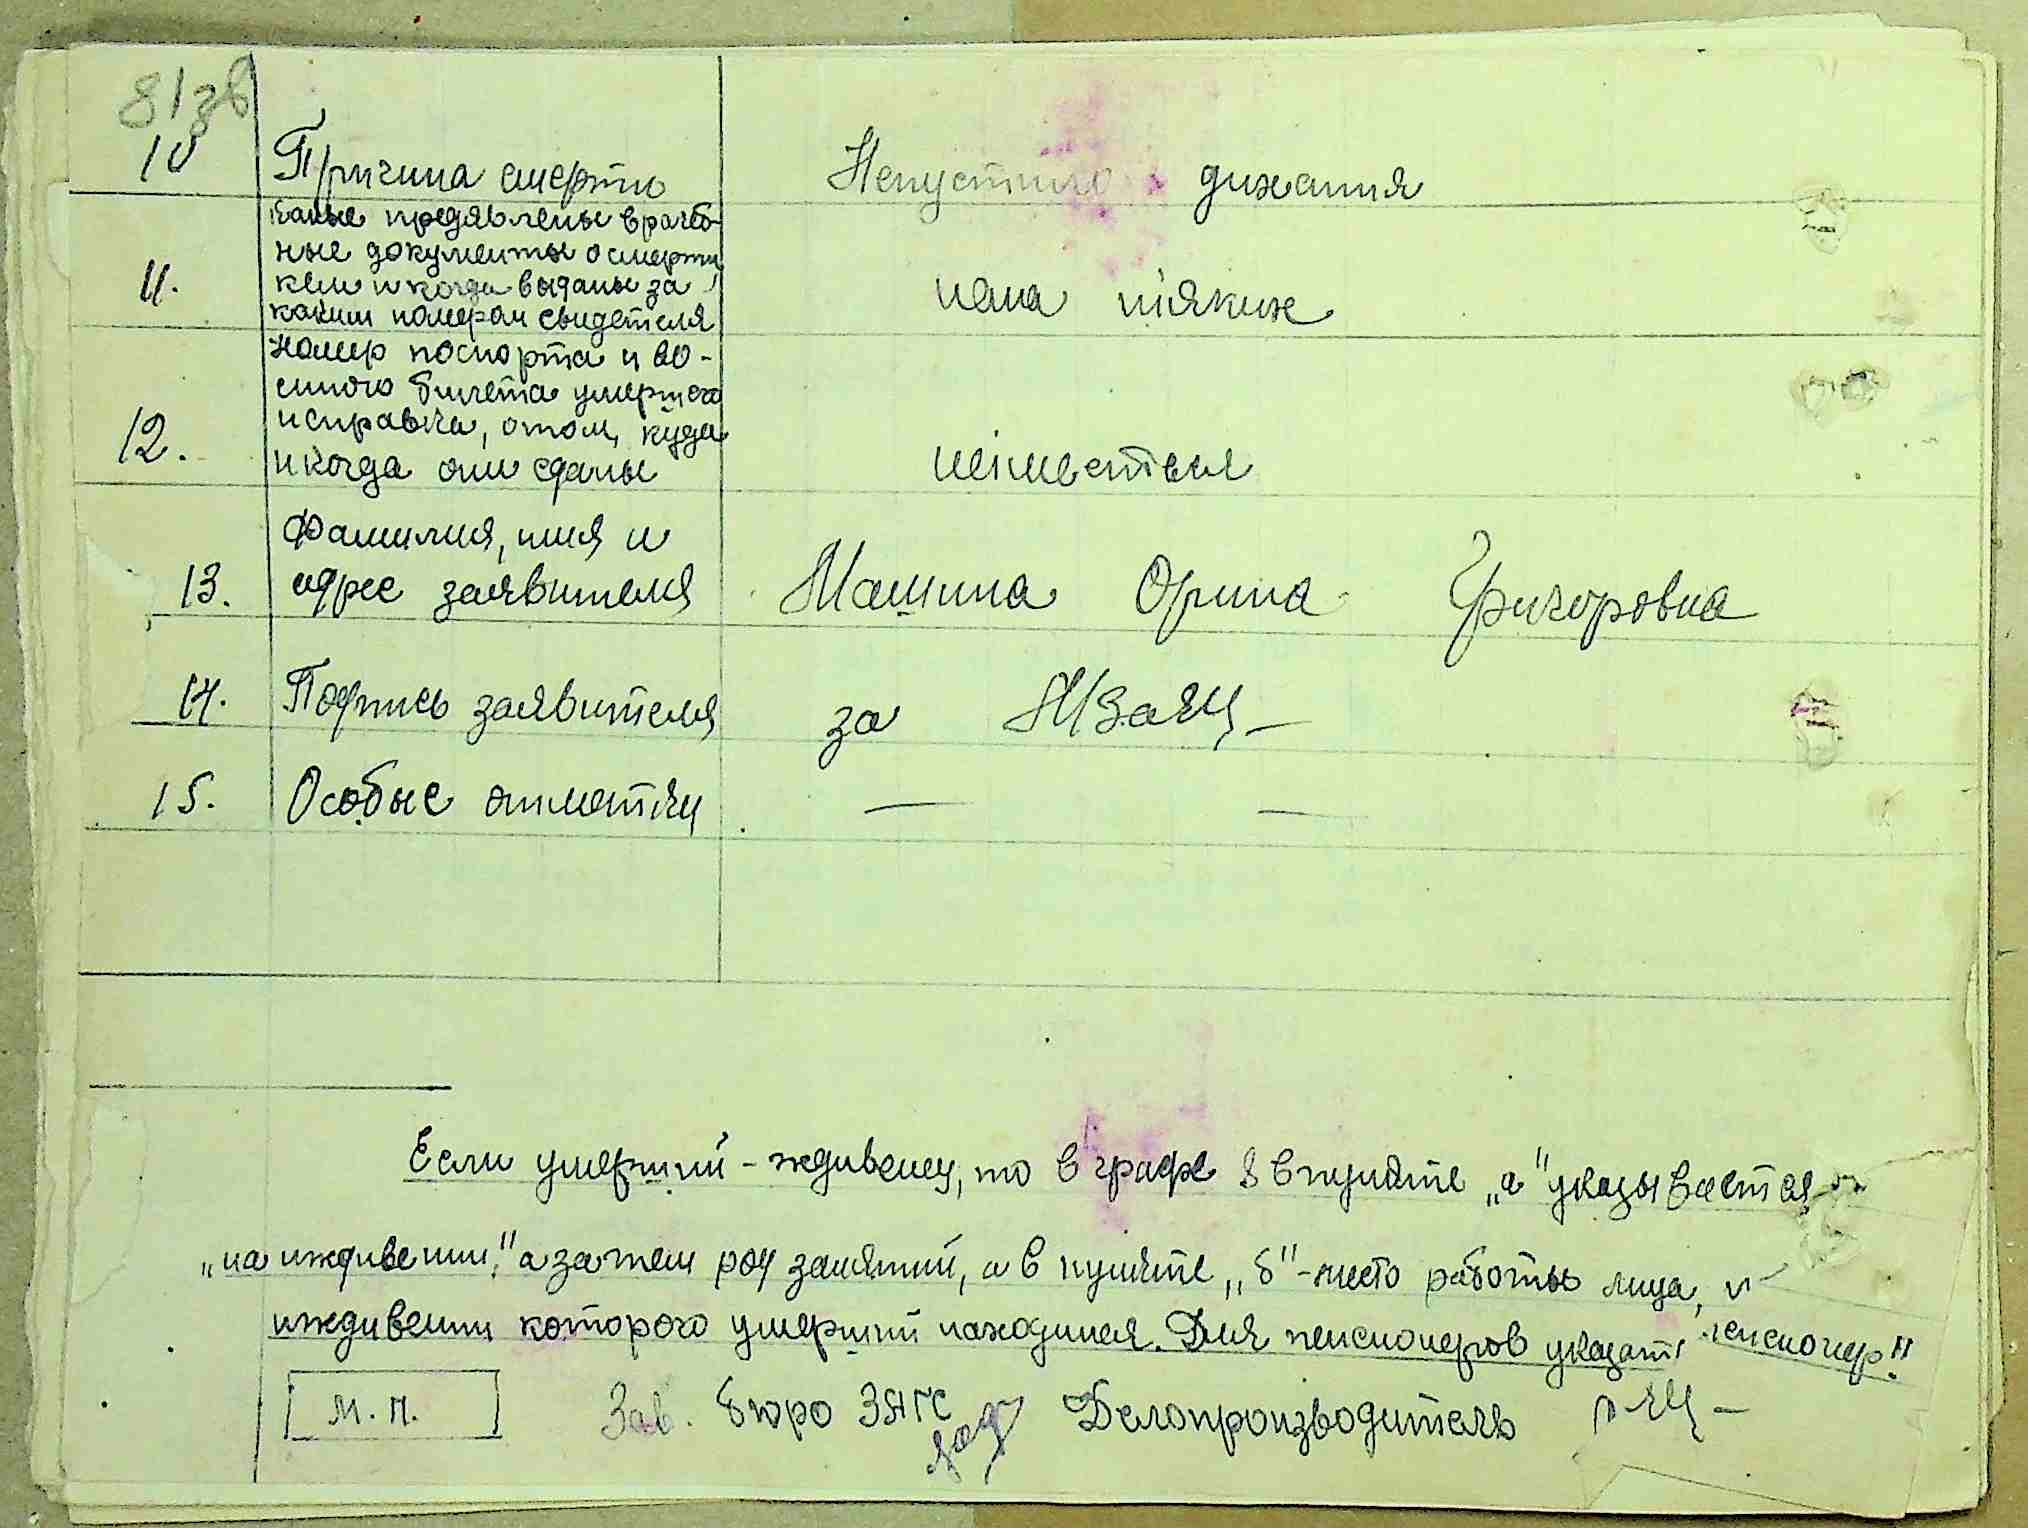 81зв
10 Причина смерти Непустило дихання
Какие предявлены врачеб-
ные документы о смерти
11. кем и когда выданы за нема ніяких
каким номером свидетеля
Номер поспорта и во-
енного билета умершего
исправка, отом, куда
12. и когда они сданы неімееться
Фамилия, имя и
13. адрес заявителя Машина Орина Григоровна
14. Подпись заявителя за
15. Особые отметки — —
Если умерший - ждивенец, то в графе 8 в пункте „а" указывается
„на иждивении," а затем род занятий, а в пункте „б" - место работы лица, и
иждивении которого умерший находился. Для пенсионеров указать "пенсионер."
М. П. Зав. бюро ЗАГС Делопроизводитель